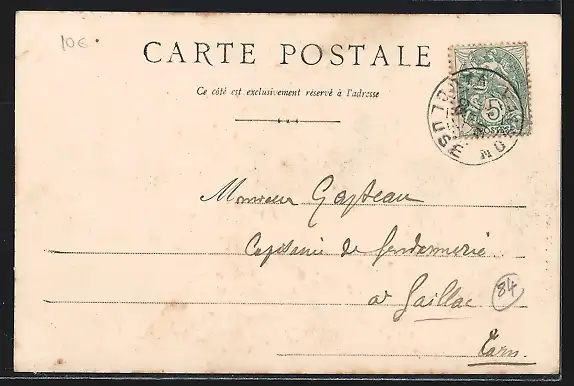 10€
CARTE POSTALE
Ce côté est exclusivement réservé à l'adresse
5
POSTES
Monsieur Gasteau
Capitaine de Gendarmerie
à Gaillac
84
Tarn.